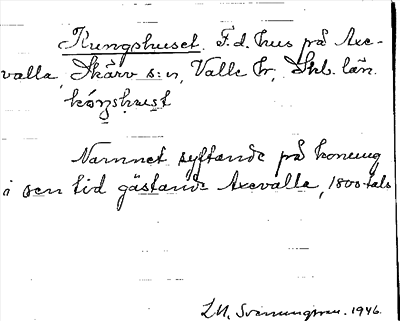 Kungshuset. F. d. hus på Axe-
valla, Skärv s:n, Valle hr, Skb. län.
kóŋshust
Namnet syftande på konung
i sen tid gästande Axevalla, 1800-tals
L.M. Svenungsson. 1946.